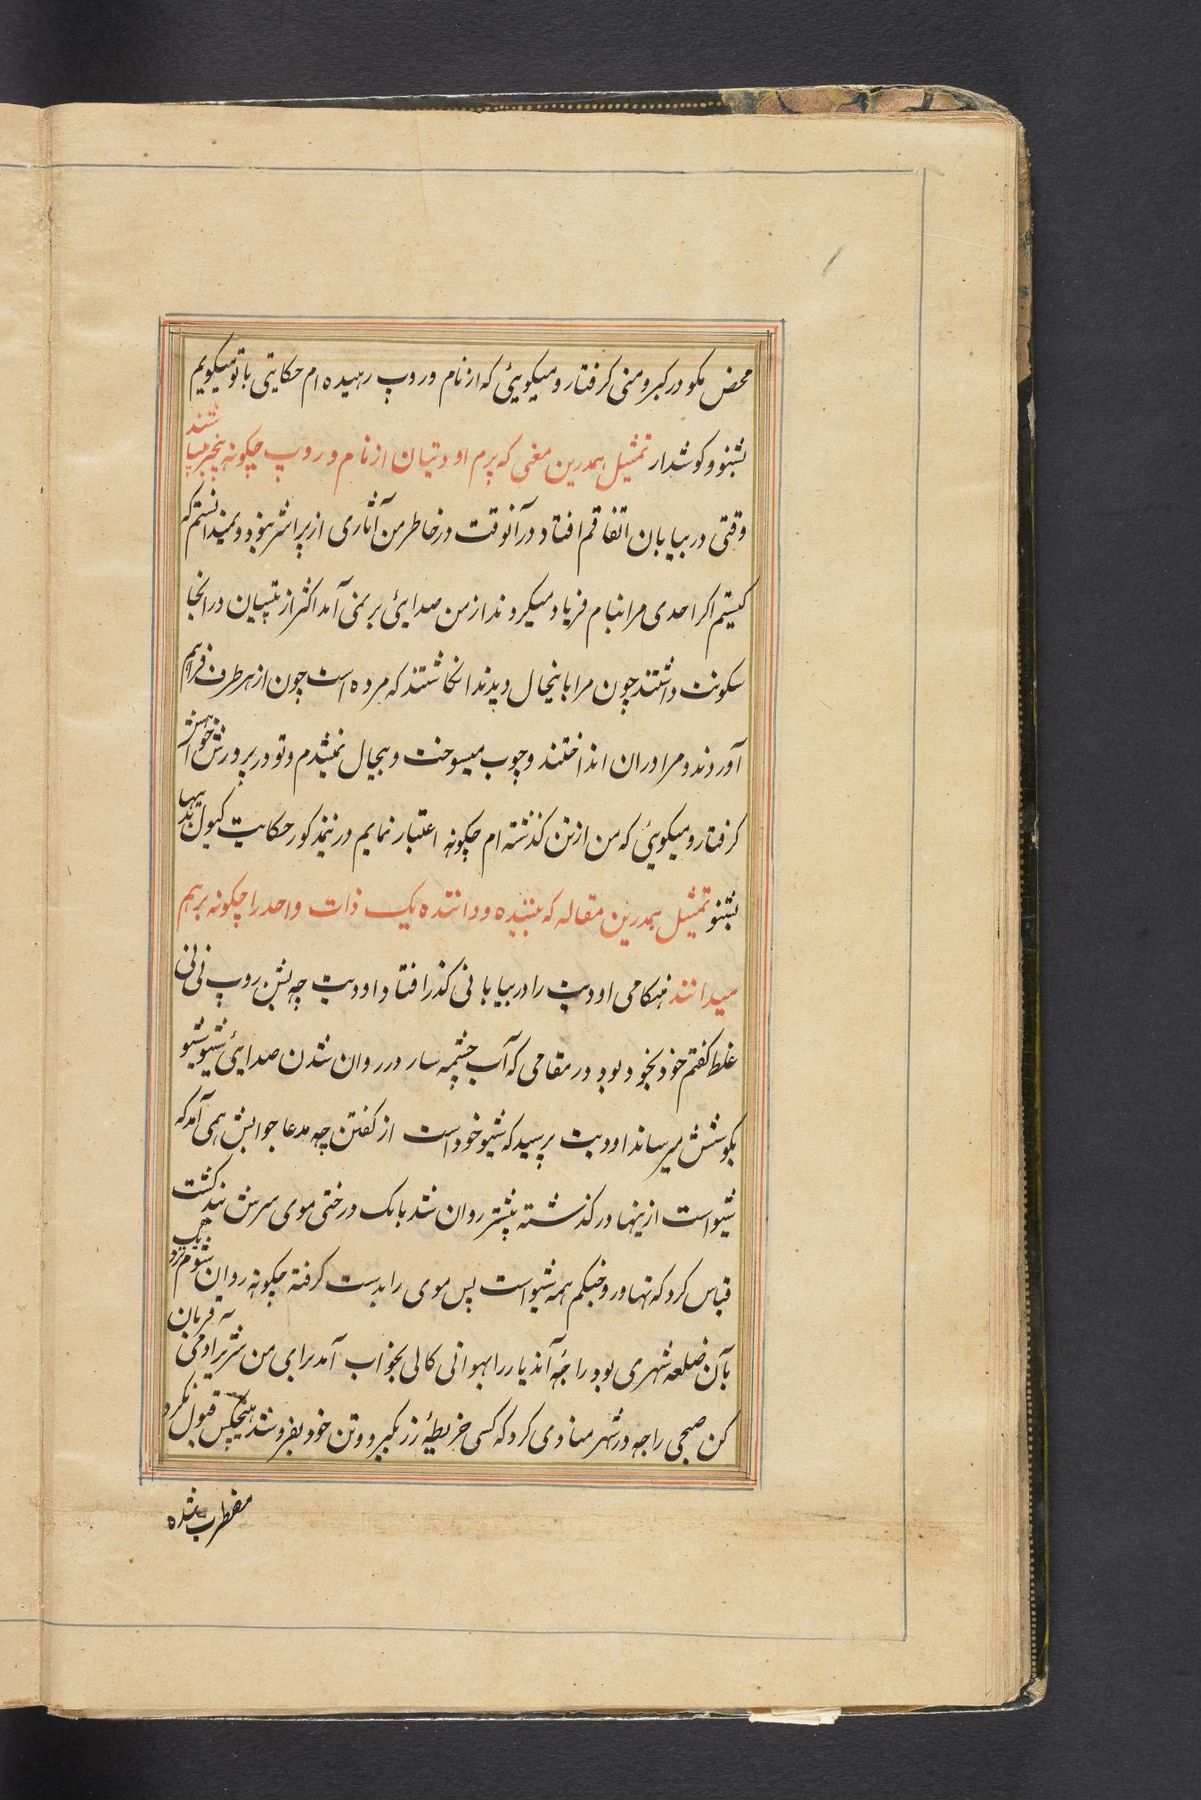 محض مکو در کبر و منی کرفتار و میکویئی که از نام و روپ رهیده ام حکایتی با تو میکویم
بشنو و کوشدار تمثیل همدرین معنی که پرم اودتیان از نام و روپ چکونه بیخبر میباشند
وقتی در بیابان اتفاقم افتاد در آنوقت در خاطر من آثاری از پر اشر نبود و نمیدانستم که
کیستم اکر احدی مرا بنام فریاد میکردند از من صدایئی بر نمی آمد اکثر از تپسیان در انجا
سکونت داشتند چون مرا باینحال دیدند انکاشتند که مرده است چون از هر طرف فراهم
آوردند و مرا در ان انداختند و چوب میسوخت و بیحال نمیشدم و تو در پرورش خواهش
کرفتار و میکویئی که من از تن کذشته ام چکونه اعتبار نمایم درینمذکور حکایت کیول بدیها
بشنو تمثیل همدرین مقاله که بیننده و داننده یک ذات واحد را چکونه برهم
میدانند هنکامی اودیت را در بیابانی کذر افتاد اودیت چه بشن روپ نی نی
غلط کفتم خود بخود بود در مقامی که آب چشمه سار در روان شدن صدایئی شیو شیو
بکوشش میرساند اودیت پرسید که شیو خود است از کفتن چه مدعا جوابش همی آمد که
شیو است ازینها در کذشته پیشتر روان شد بامک درختی موی سرش بند کشت
قیاس کرد که تنها ور وخبکم همه شیو است پس موی را بدست کرفته چکونه روان شوم نزدیک
بآن ضلعه شهری بود راجهٔ آندیار را بهوانی کالی بخواب آمد برای من شریر آدمی قربان
کن صبحی راجه در شهر منادی کرد که کسی خریطهٔ زر بکیرد و تن خود بفروشد هیچکس قبول نکرد
مضطرب شده